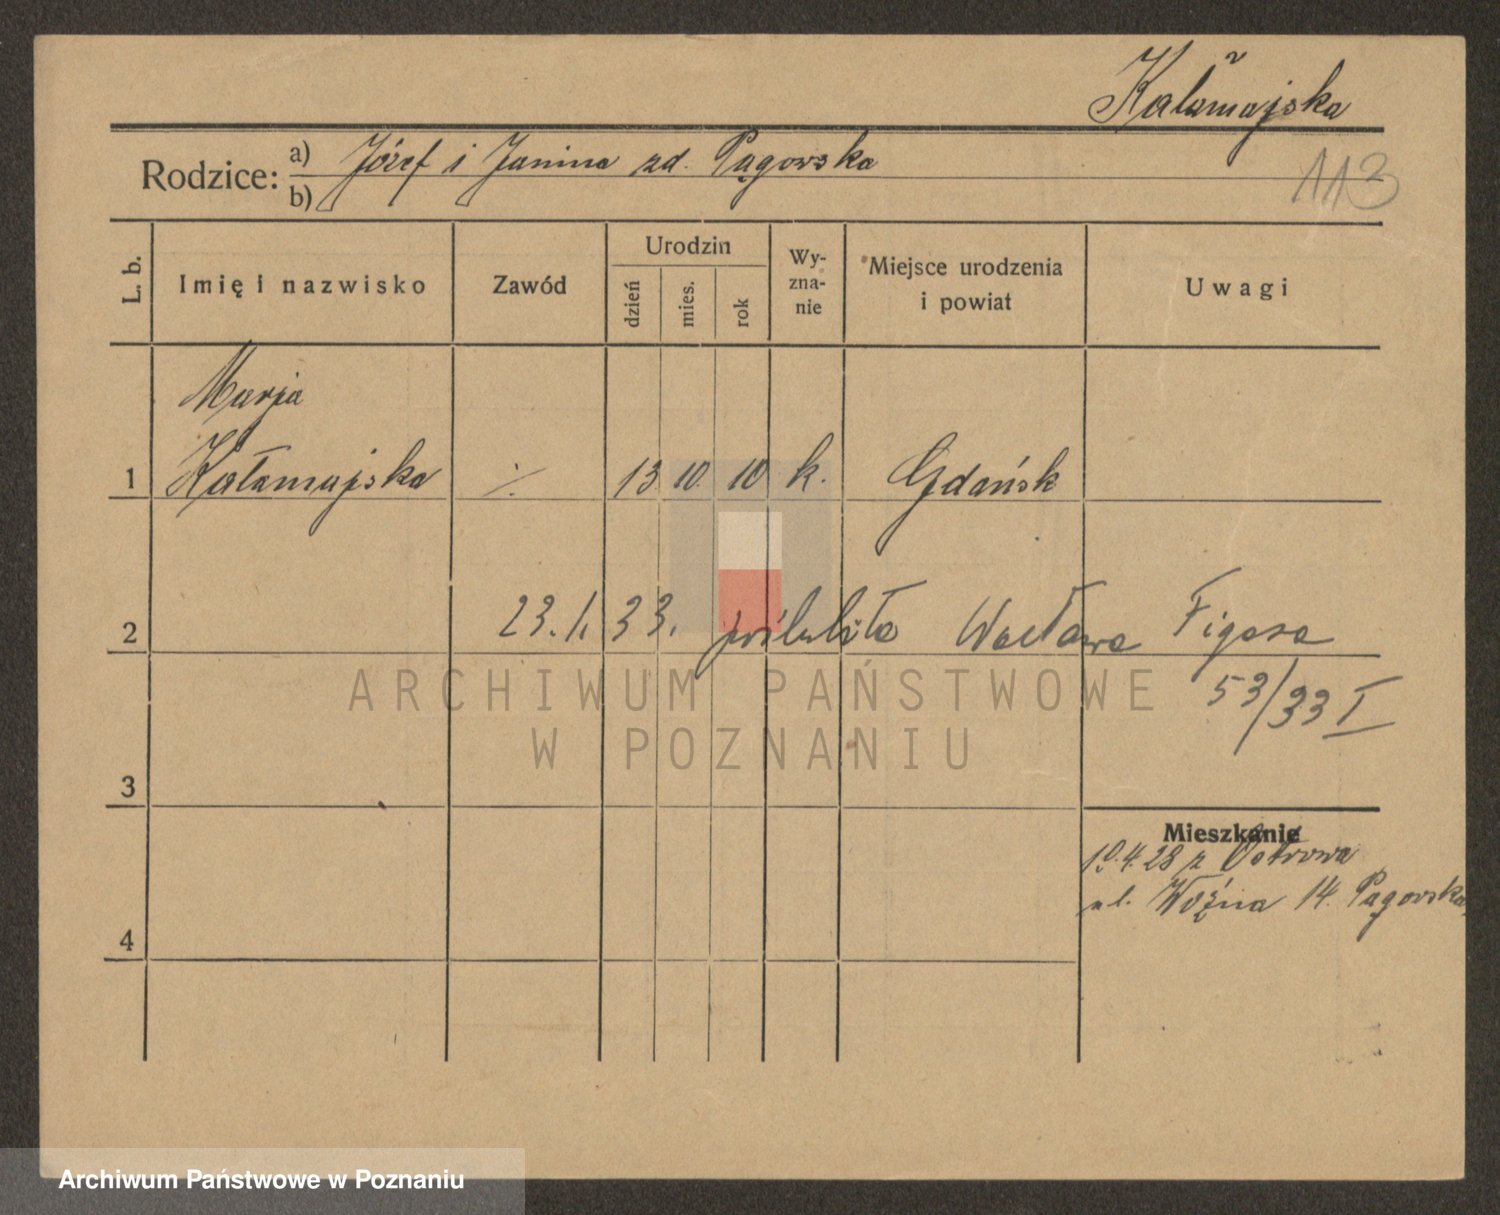 Kałamajska
Rodzice: a) Józef i Janina zd. Pągowska
b)
113
L. b.
Imię i nazwisko
Zawód
Urodzin
dzień
mies.
rok
Wy-
zna-
nie
Miejsce urodzenia
i powiat
Uwagi
Marja
1 Kałamajska ./. 13 10. 10 k. Gdańsk
2 23.1.33. poślubiła Wacława Figasa
53/33 I
ARCHIWUM PAŃSTWOWE
W POZNANIU
3
Mieszkanie
10.4.28 z Ostrowa
ul. Woźna 14. Pągowska
4
Archiwum Państwowe w Poznaniu